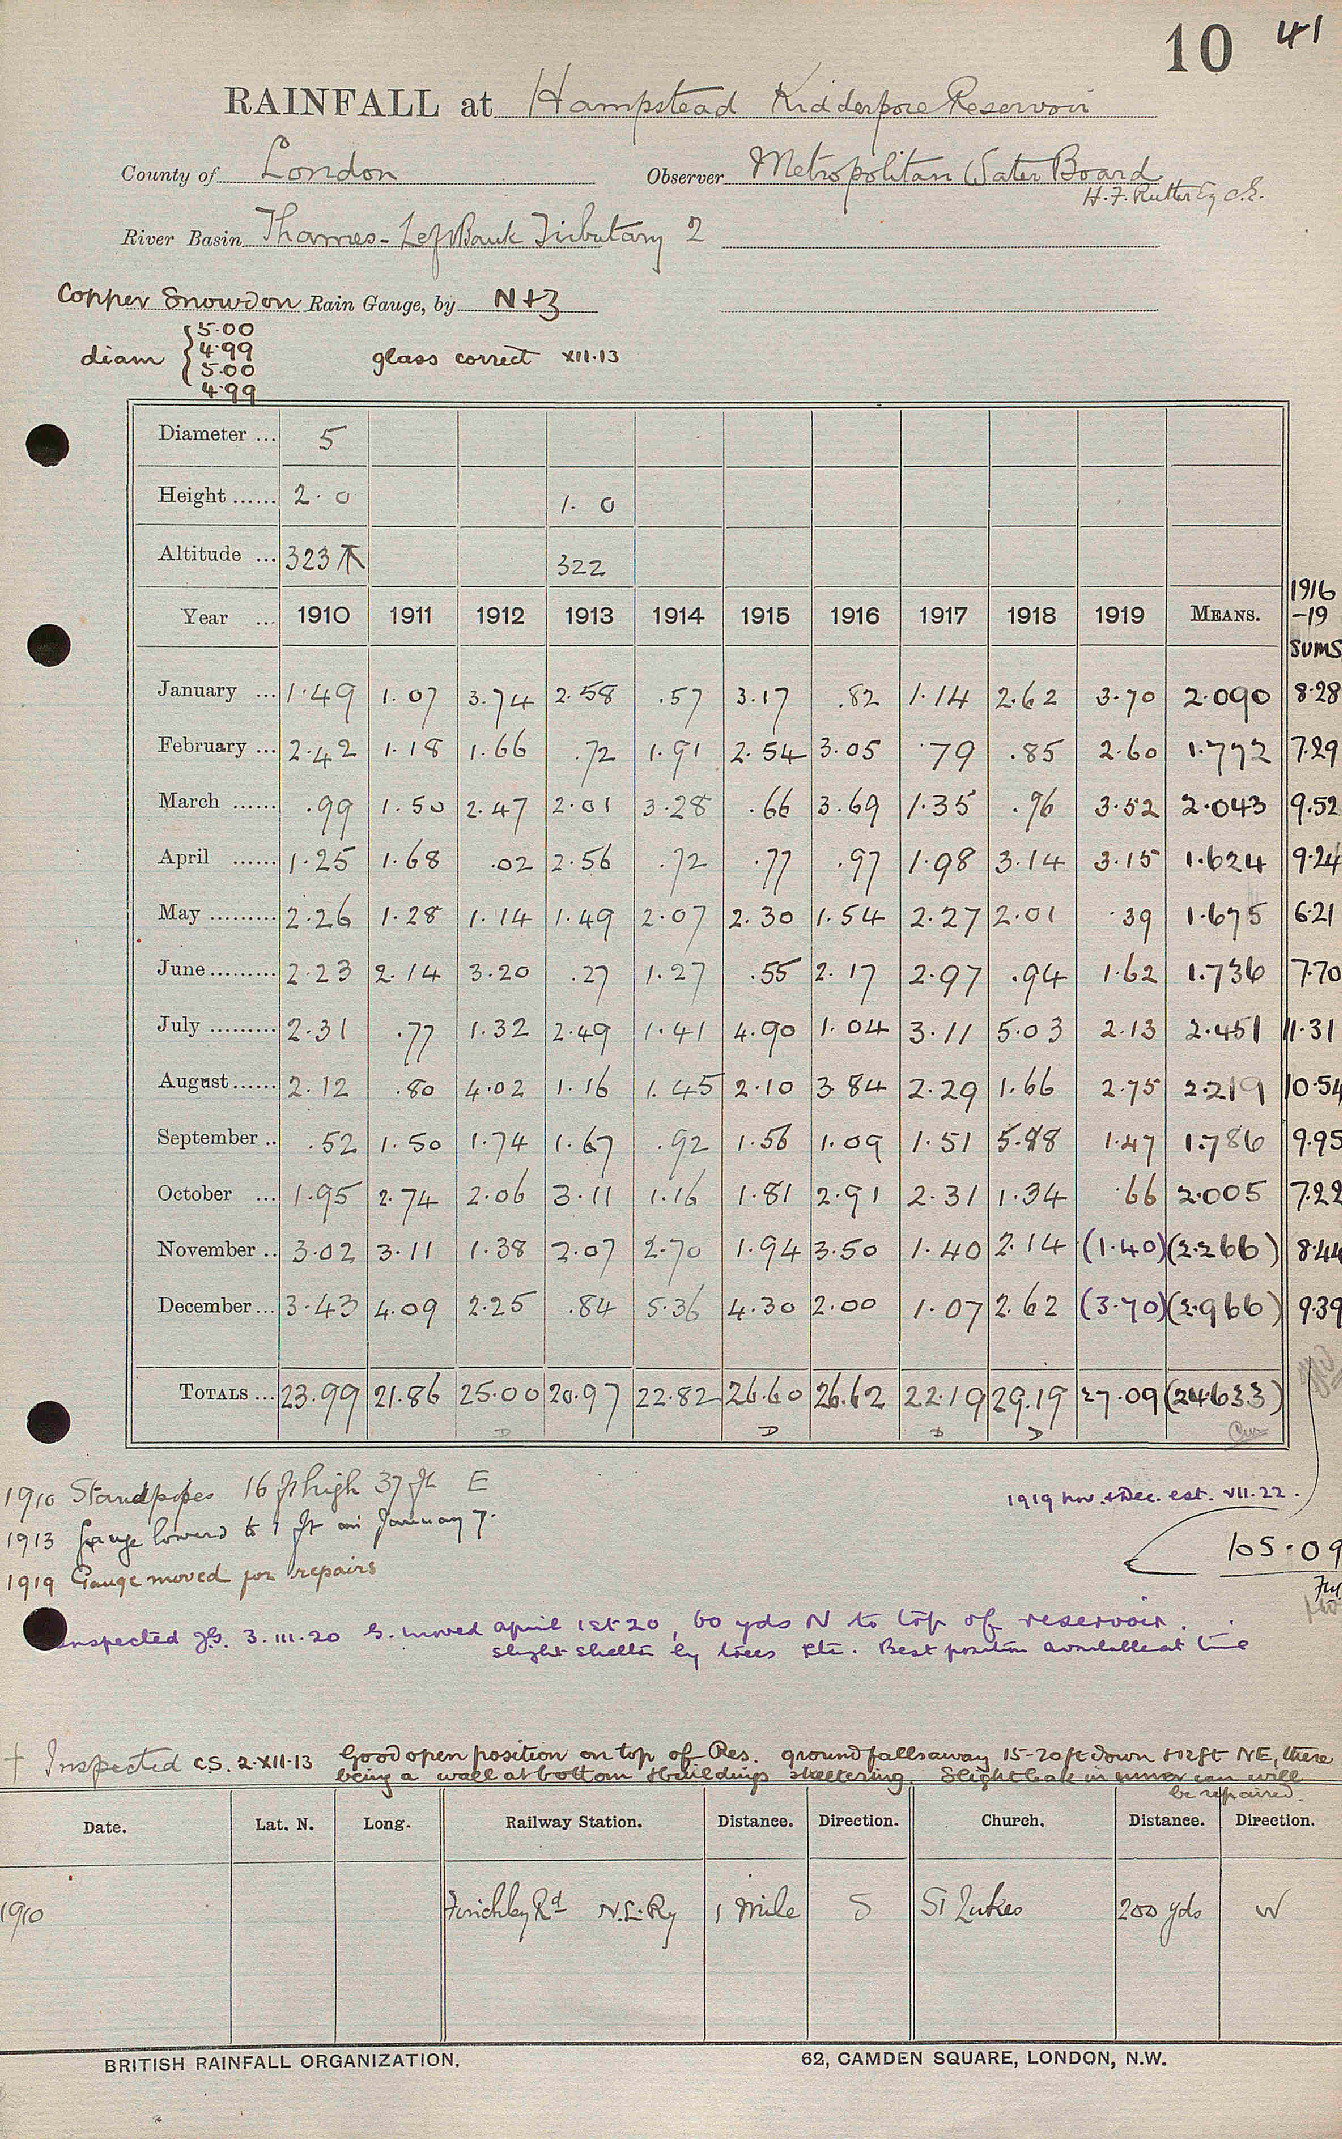 10 41
RAINFALL at Hampstead Kidderpore Reservoir
County of London Observer Metropolitan Water Board
H. F. Rutter Esq C.E.
River Basin Thames - Left Bank Tributary 2
Copper Snowdon Rain Gauge, by N+Z
diam { 5.00 4.99 5.00 4.99 glass correct XII.13
Diameter ... 5
Height ...... 2. 0 1. 0
Altitude ... 323 322
Year ... 1910 1911 1912 1913 1914 1915 1916 1917 1918 1919 MEANS. 1916 -19 SUMS
January ... 1.49 1.07 3.74 2.58 .57 3.17 .82 1.14 2.62 3.70 2.090 8.28
February ... 2.42 1.18 1.66 .72 1.91 2.54 3.05 .79 .85 2.60 1.772 7.29
March ...... .99 1.50 2.47 2.01 3.28 .66 3.69 1.35 .96 3.52 2.043 9.52
April ...... 1.25 1.68 .02 2.56 .72 .77 .97 1.98 3.14 3.15 1.624 9.24
May ......... 2.26 1.28 1.14 1.49 2.07 2.30 1.54 2.27 2.01 .39 1.675 6.21
June ......... 2.23 2.14 3.20 .27 1.27 .55 2.17 2.97 .94 1.62 1.736 7.70
July ......... 2.31 .77 1.32 2.49 1.41 4.90 1.04 3.11 5.03 2.13 2.451 11.31
August ...... 2.12 .80 4.02 1.16 1.45 2.10 3.84 2.29 1.66 2.75 2.219 10.54
September .. .52 1.50 1.74 1.67 .92 1.56 1.09 1.51 5.88 1.47 1.786 9.95
October ... 1.95 2.74 2.06 3.11 1.16 1.81 2.91 2.31 1.34 .66 2.005 7.22
November .. 3.02 3.11 1.38 2.07 2.70 1.94 3.50 1.40 2.14 (1.40) (2.266) 8.44
December ... 3.43 4.09 2.25 .84 5.36 4.30 2.00 1.07 2.62 (3.70) (2.966) 9.39
TOTALS ... 23.99 21.86 25.00 20.97 22.82 26.60 26.62 22.19 29.19 27.09 (24.633)
D D D D
1910 Standpipes 16 ft high 37 ft E
1919 Nov. & Dec. est. VII.22.
1913 Gauge lowered to 1 ft on January 7.
105.09
1919 Gauge moved for repairs
Inspected JG. 3.III.20 G. moved april 1st 20, 60 yds N to top of reservoir.
slight shelter by trees etc. Best position available at time
† Inspected C.S. 2.XII.13 Good open position on top of Res. ground falls away 15-20ft down 112ft NE, there
being a wall at bottom & buildings sheltering. Slight leak in inner can will
be repaired.
Date. Lat. N. Long. Railway Station. Distance. Direction. Church. Distance. Direction.
1910 Finchley Rd N.L.Ry 1 Mile S St Lukes 200 yds W
BRITISH RAINFALL ORGANIZATION. 62, CAMDEN SQUARE, LONDON, N.W.